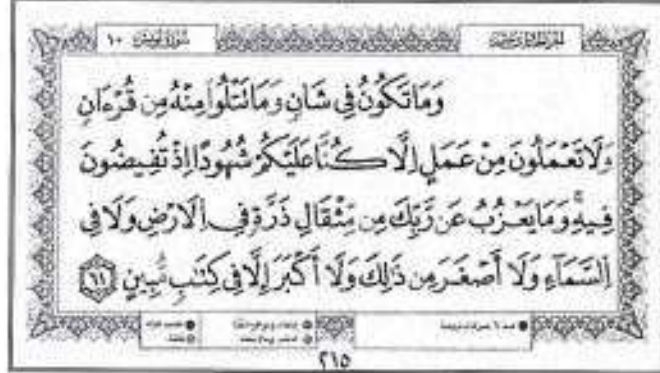 سورة يونس ١٠
وَمَا تَكُونُ فِى شَانٖ وَمَا تَتْلُواْ مِنْهُ مِن قُرْءَانٖ
وَلَا تَعْمَلُونَ مِنْ عَمَلٍ اِلَّا كُنَّا عَلَيْكُمْ شُهُودًا اِذْ تُفِيضُونَ
فِيهِۚ وَمَا يَعْزُبُ عَن رَّبِّكَ مِن مِّثْقَالِ ذَرَّةٖ فِى اِلَارْضِ وَلَا فِى
اِلسَّمَآءِ وَلَا أَصْغَرَ مِن ذَٰلِكَ وَلَا أَكْبَرَ إِلَّا فِى كِتَٰبٖ مُّبِينٍ ٦١
٢١٥